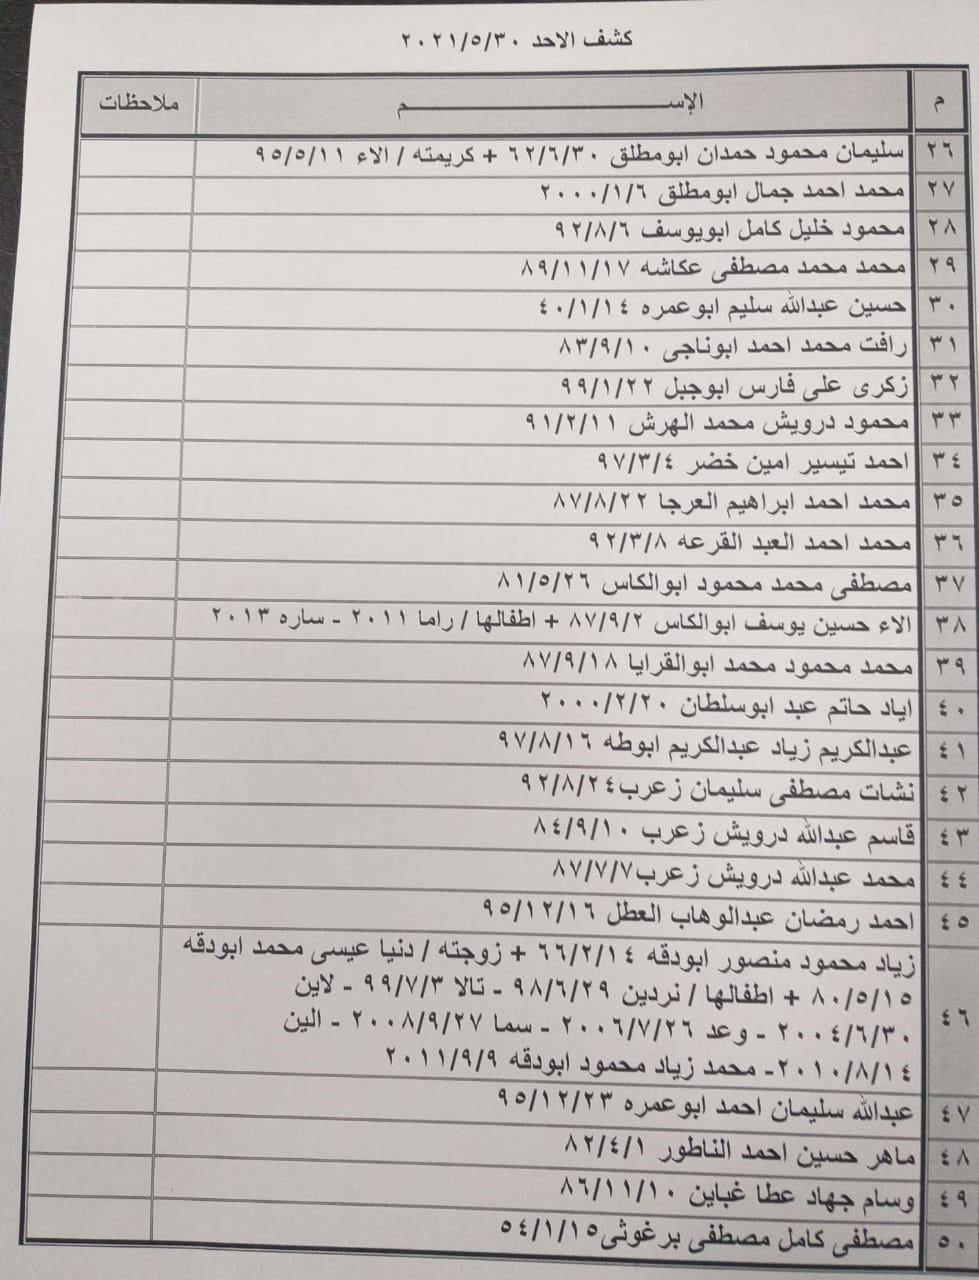 كشف الاحد ٢٠٢١/٥/٣٠
م الإســـــــم ملاحظات
٢٦ سليمان محمود حمدان ابومطلق ٦٢/٦/٣٠ + كريمته / الاء ٩٥/٥/١١
٢٧ محمد احمد جمال ابومطلق ٢٠٠٠/١/٦
٢٨ محمود خليل كامل ابويوسف ٩٢/٨/٦
٢٩ محمد محمد مصطفى عكاشه ٨٩/١١/١٧
٣٠ حسين عبدالله سليم ابوعمره ٤٠/١/١٤
٣١ رافت محمد احمد ابوناجى ٨٣/٩/١٠
٣٢ زكرى على فارس ابوجبل ٩٩/١/٢٢
٣٣ محمود درويش محمد الهرش ٩١/٢/١١
٣٤ احمد تيسير امين خضر ٩٧/٣/٤
٣٥ محمد احمد ابراهيم العرجا ٨٧/٨/٢٢
٣٦ محمد احمد العبد القرعه ٩٢/٣/٨
٣٧ مصطفى محمد محمود ابوالكاس ٨١/٥/٢٦
٣٨ الاء حسين يوسف ابوالكاس ٨٧/٩/٢ + اطفالها / راما ٢٠١١ - ساره ٢٠١٣
٣٩ محمد محمود محمد ابوالقرايا ٨٧/٩/١٨
٤٠ اياد حاتم عبد ابوسلطان ٢٠٠٠/٢/٢٠
٤١ عبدالكريم زياد عبدالكريم ابوطه ٩٧/٨/١٦
٤٢ نشات مصطفى سليمان زعرب٩٢/٨/٢٤
٤٣ قاسم عبدالله درويش زعرب ٨٤/٩/١٠
٤٤ محمد عبدالله درويش زعرب٨٧/٧/٧
٤٥ احمد رمضان عبدالوهاب العطل ٩٥/١٢/١٦
٤٦ زياد محمود منصور ابودقه ٦٦/٢/١٤ + زوجته / دنيا عيسى محمد ابودقه
٨٠/٥/١٥ + اطفالها / نردين ٩٨/٦/٢٩ - تالا ٩٩/٧/٣ - لاين
٢٠٠٤/٦/٣٠ - وعد ٢٠٠٦/٧/٢٦ - سما ٢٠٠٨/٩/٢٧ - الين
٢٠١٠/٨/١٤- محمد زياد محمود ابودقه ٢٠١١/٩/٩
٤٧ عبدالله سليمان احمد ابوعمره ٩٥/١٢/٢٣
٤٨ ماهر حسين احمد الناطور ٨٢/٤/١
٤٩ وسام جهاد عطا غباين ٨٦/١١/١٠
٥٠ مصطفى كامل مصطفى برغوثى٥٤/١/١٥